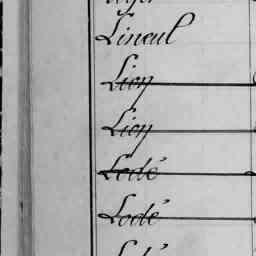 Lineul
Lion
Lion
Lodé
Lodé